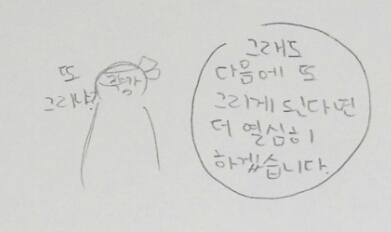 또
그리냐?
작가
그래도
다음에 또
그리게 된다면
더 열심히
하겠습니다.